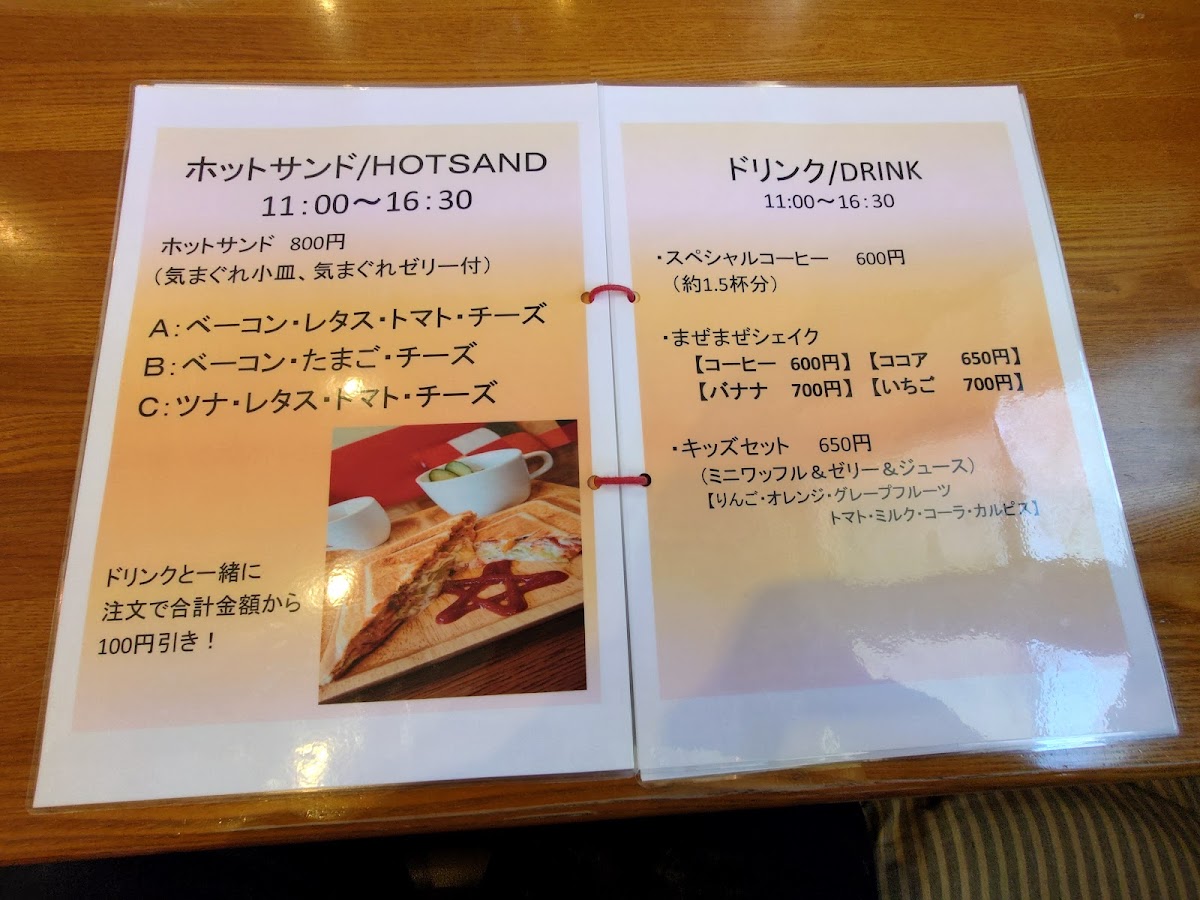 ホットサンド/HOTSAND
11:00～16:30
ホットサンド 800円
（気まぐれ小皿、気まぐれゼリー付）
A:ベーコン・レタス・トマト・チーズ
B:ベーコン・たまご・チーズ
C:ツナ・レタス・トマト・チーズ
ドリンクと一緒に
注文で合計金額から
100円引き！
ドリンク/DRINK
11:00～16:30
・スペシャルコーヒー 600円
（約1.5杯分）
・まぜまぜシェイク
【コーヒー 600円】【ココア 650円】
【バナナ 700円】【いちご 700円】
・キッズセット 650円
（ミニワッフル＆ゼリー＆ジュース）
【りんご・オレンジ・グレープフルーツ
トマト・ミルク・コーラ・カルピス】